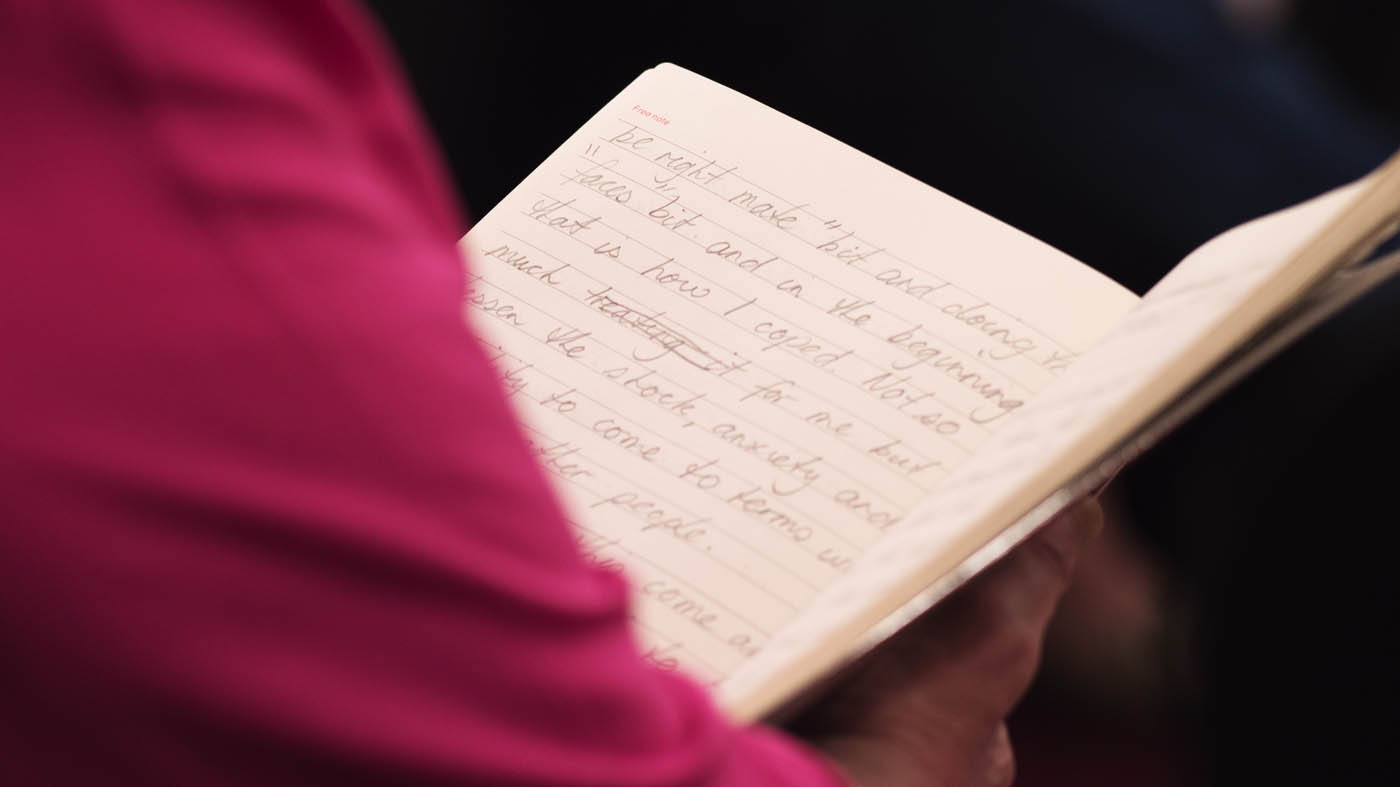 Free note
be right mate" bit and doing
"faces" bit. and in the beginning
that is how I coped. Not so
much treating it for me but
the shock, anxiety and
to come to terms
people.
come